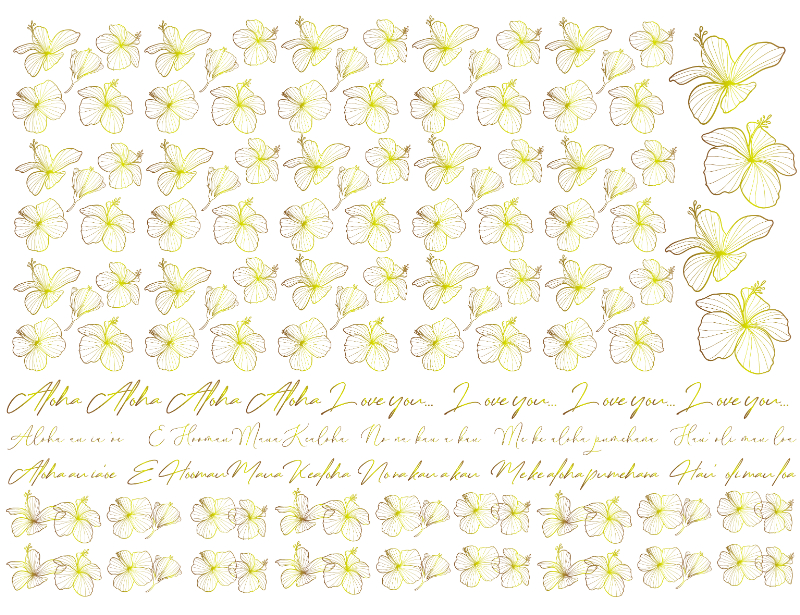 Aloha Aloha Aloha Aloha Love you... Love you... Love you... Love you...
Aloha au ia'oe E Hoomau Maua Kealoha No na kau a kau Me ke aloha pumehana Hau'oli mau loa
Aloha au ia'oe E Hoomau Maua Kealoha No na kau a kau Me ke aloha pumehana Hau'oli mau loa